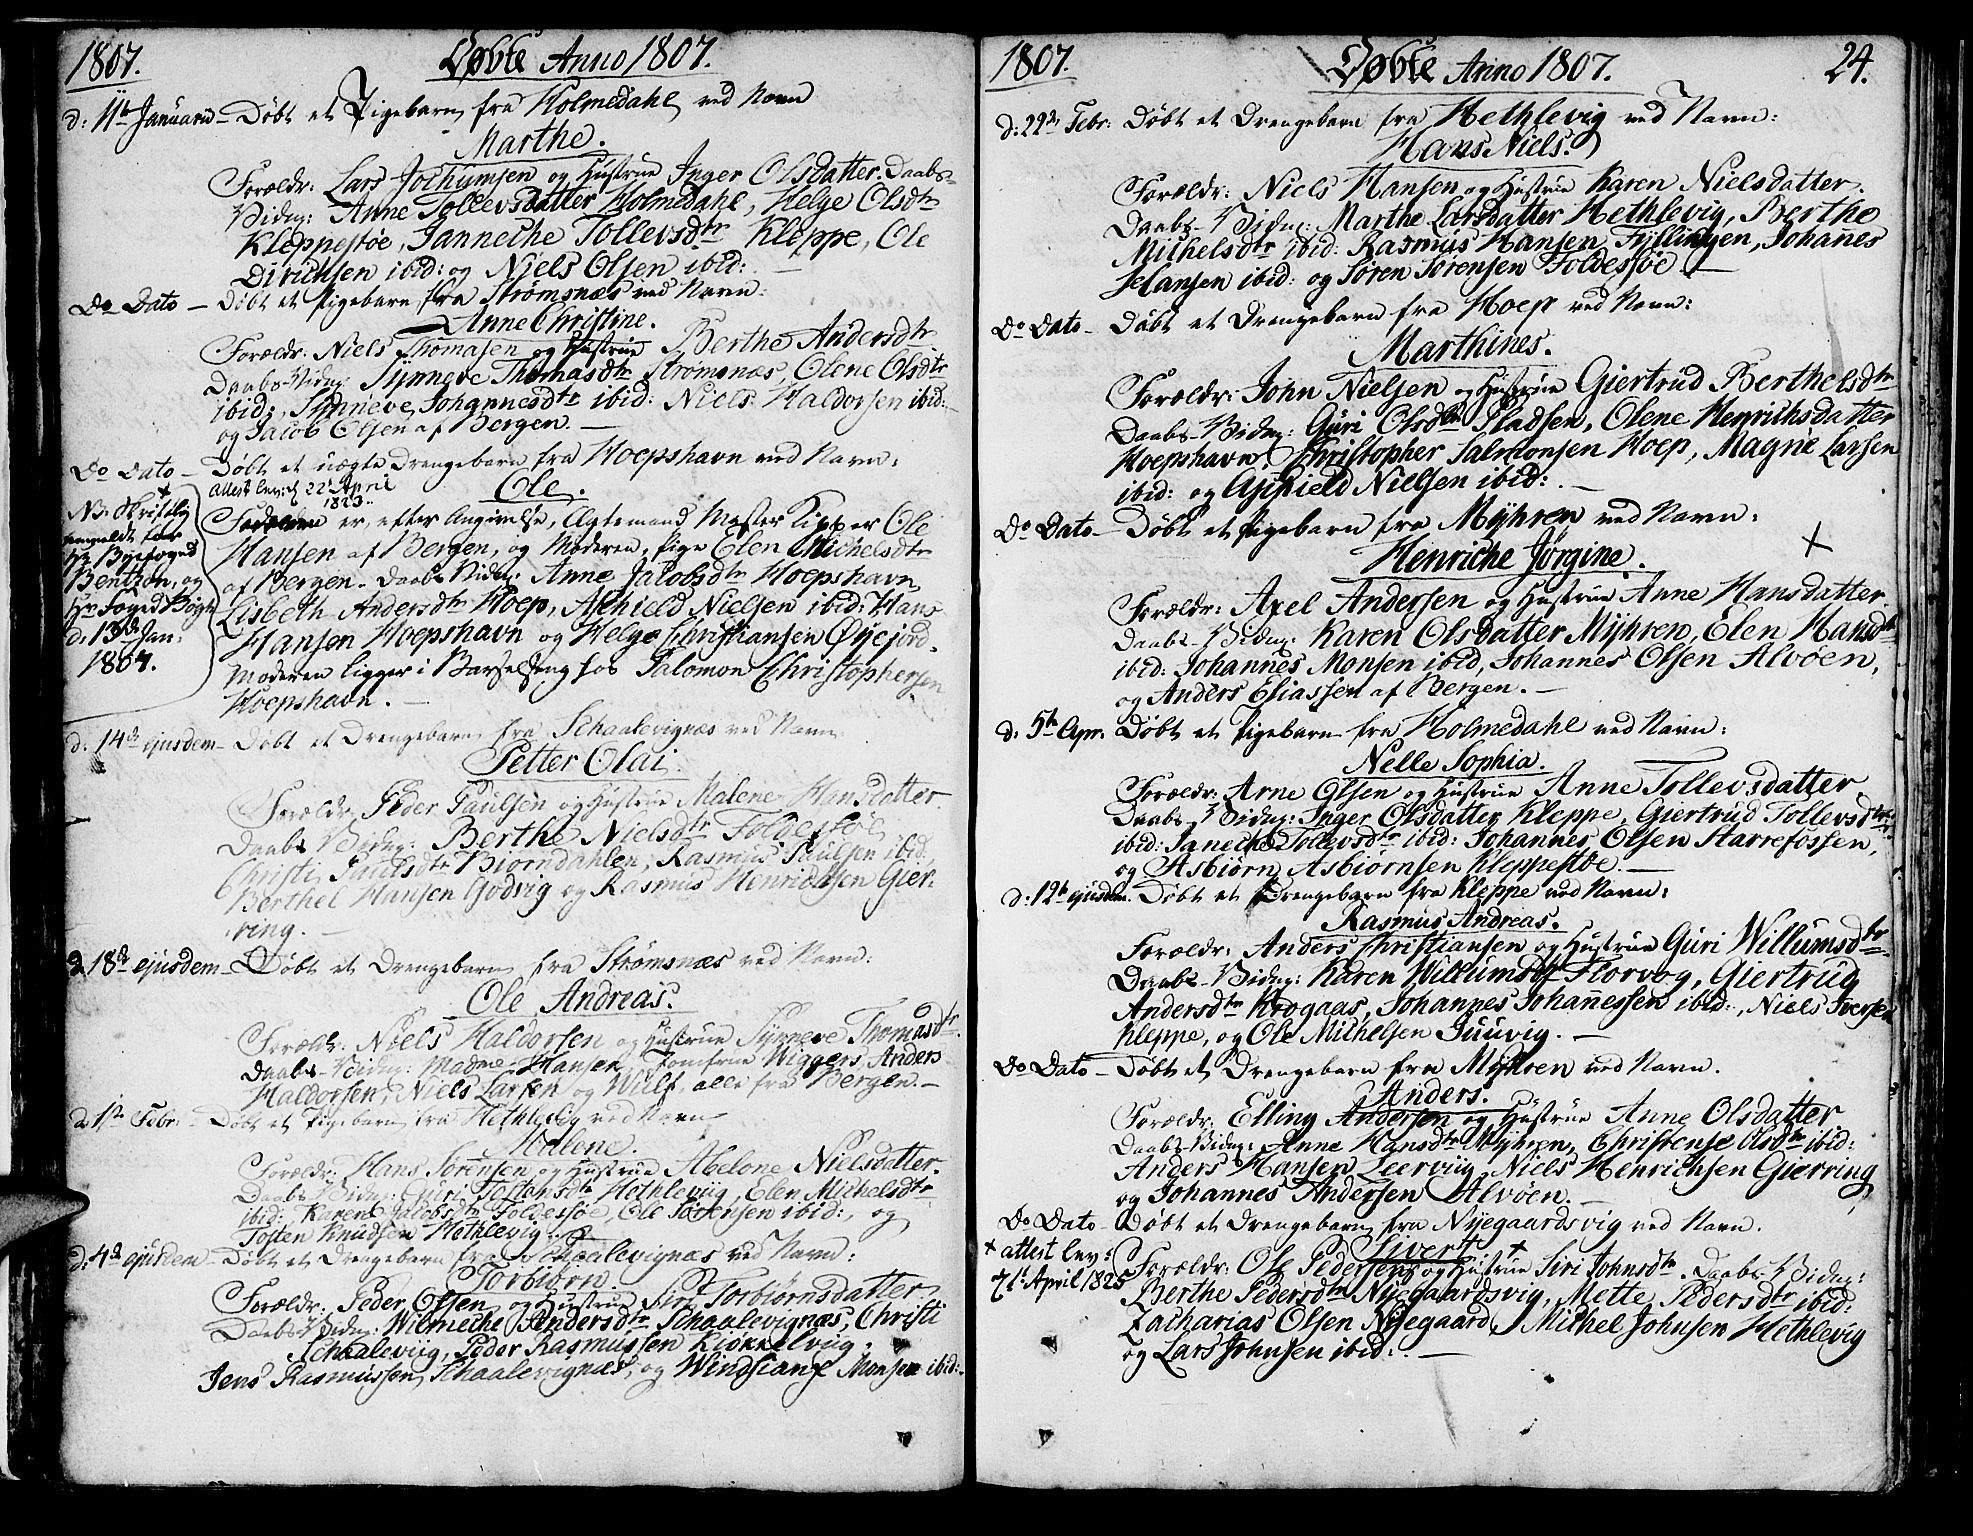 1807. Døbte Anno 1807.
d: 11te Januarii – Døbt et Pigebarn fra Holmedahl ved Navn
Marthe.
Forældr: Lars Jochumsen og Hustrue Inger Olsdatter. Daabs-
Vidn: Anne Tollevsdatter Holmedahl, Helge Olsdtr
Kleppestøe, Janneche Tollevsdtr Kleppe, Ole
Dirichsen ibid: og Niels Olsen ibid: –
Do Dato – Døbt et Pigebarn fra Strømsnæs ved Navn:
Anne Christine.
Forældr: Niels Thomasen og Hustrue Berthe Andersdtr
Daabs-Vidn: Synneve Thomasdtr Strømsnæs, Olene Olsdtr
ibid:, Synneve Johannesdtr ibid: Niels Haldorsen ibid:
og Jacob Olsen af Bergen. –
Do Dato – Døbt et uægte Drengebarn fra Hoepshavn ved Navn:
Attest lev: d 22 April
1823.
Ole.
NB: Skriftlig
anmeldt for
Hr Byefoged
Benthon, og
Hr Foged Bøgh
d: 13de Jan:
1807.
Faderen er, efter Angivelse, Ægtemand Mester Kipper Ole
Hansen af Bergen, og Moderen, Pige Elen Michelsdtr
af Bergen – Daabs Vidn: Anne Jacobsdtr Hoepshavn
Lisbeth Andersdtr Hoep, Aschield Nielsen ibid: Hans
Hansen Hoepshavn og Helge Christiansen Øyejord.
Moderen ligger i Barselseng hos Salomon Christophersen
Hoepshavn. –
d: 14de ejusdem – Døbt et Drengebarn fra Schaalevignæs ved Navn
Petter Olai.
Forældr: Peder Paulsen og Hustrue Malene Hansdatter.
Daabs Vidn: Berthe Nielsdtr Foldessøe,
Christi Paulsdtr Biørndahlen, Rasmus Paulsen ibid,
Berthel Hansen Godvig og Rasmus Henrichsen Gier-
ring. –
d 18de ejusdem – Døbt et Drengebarn fra Strømsnæs ved Navn:
Ole Andreas.
Forældr: Niels Haldorsen og Hustrue Synneve Thomasdtr.
Daabs-Vidn: Madme Hansen, Jomfrue Wiggers, Anders
Haldorsen, Niels Larsen og Wulf alle fra Bergen. –
d 1ste Febr: – Døbt et Pigebarn fra Hethlevig ved Navn
Malene.
Forældr: Hans Sørensen og Hustrue Abelone Nielsdatter.
Daabs Vidn: Guri Tostensdtr Hethleviig, Elen Michelsdtr
ibid: Karen Jacobsdtr Foldessøe, Ole Sørensen ibid:, og
Tosten Knudsen Hethlevig. –
d: 4de ejusdem – Døbt et Drengebarn fra Schaalevignæs ved Navn:
Torbiørn
Forældr: Peder Olsen og Hustrue Siri Torbiørnsdatter
Daabs Vidn: Wilmeche Andersdtr Schaalevignæs, Christi
Schaaleviig, Peder Rasmussen Klokkelviig
Jens Rasmussen Schaalevignæs, og Windsiantz Monsen ibid:.
1807. Døbte Anno 1807. 24.
d: 22de Febr: Døbt et Drengebarn fra Hethlevig ved Navn:
Hans Niels.
Forældr: Niels Hansen og Hustrue Karen Nielsdatter.
Daabs-Vidn: Marthe Larsdatter Hethlevig, Berthe
Michelsdtr ibid. Rasmus Hansen Fyllingen, Johanes
Hansen ibid: og Søren Sørensen Foldessøe –
Do Dato – Døbt et Drengebarn fra Hoep ved Navn:
Marthines.
Forældr: John Nielsen og Hustrue Giertrud Berthelsdtr
Daabs-Vidn: Guri Olsdtr Pladsen, Olene Henrichsdatter
Hoepshavn, Christopher Salomonsen Hoep, Magne Larsen
ibid: og Aschield Nielsen ibid: –
Do Dato – Døbt et Pigebarn fra Myhren ved Navn:
Henriche Jørgine.
Forældr: Axel Andersen og Hustrue Anne Hansdatter
Daabs-Vidn: Karen Olsdatter Myhren, Elen Hansdtr
ibid: Johannes Monsen ibid, Johannes Olsen Alvøen,
og Anders Eliassen af Bergen. –
d: 5te Apr: Døbt et Pigebarn fra Holmedahl ved Navn:
Nelle Sophia.
Forældr: Arne Olsen og Hustrue Anne Tollevsdatter.
Daabs-Vidn: Inger Olsdatter Kleppe, Giertrud Tollevsdtr
ibid: Janeche Tollevsdtr ibid: Johannes Olsen Starrefossen,
og Asbiørn Asbiørnsen Kleppestøe. –
d: 12te ejusdem. Døbt et Drengebarn fra Kleppe ved Navn:
Rasmus Andreas.
Forældr: Anders Christiansen og Hustrue Guri Willumsdtr
Daabs-Vidn: Karen Willumsdtr Florvog, Giertrud
Andersdtr Krogaas, Johannes Johanessen ibid:, Niels Iversen
Kleppe, og Ole Michelsen Juuvig. –
Do Dato – Døbt et Drengebarn fra Myhren ved Navn.
Anders.
Forældr: Elling Andersen og Hustrue Anne Olsdatter
Daabs Vidn: Anne Hansdtr Myhren, Christense Olsdtr ibid:
Anders Hansen Leerviig, Niels Henrichsen Gierring
og Johannes Andersen Alvøen. –
Do Dato – Døbt et Drengebarn fra Nyegaardsvig ved Navn.
Sivert
+ attest lev:
7de April 1825
Forældr: Ole Pedersen og Hustrue Siri Johnsdtr. Daabs-Vidn:
Berthe Pedersdtr Nyegaardsvig, Mette Pedersdtr ibid:
Zacharias Olsen Nyegaard, Michel Johnsen Hethlevig
og Lars Johnsen ibid: –